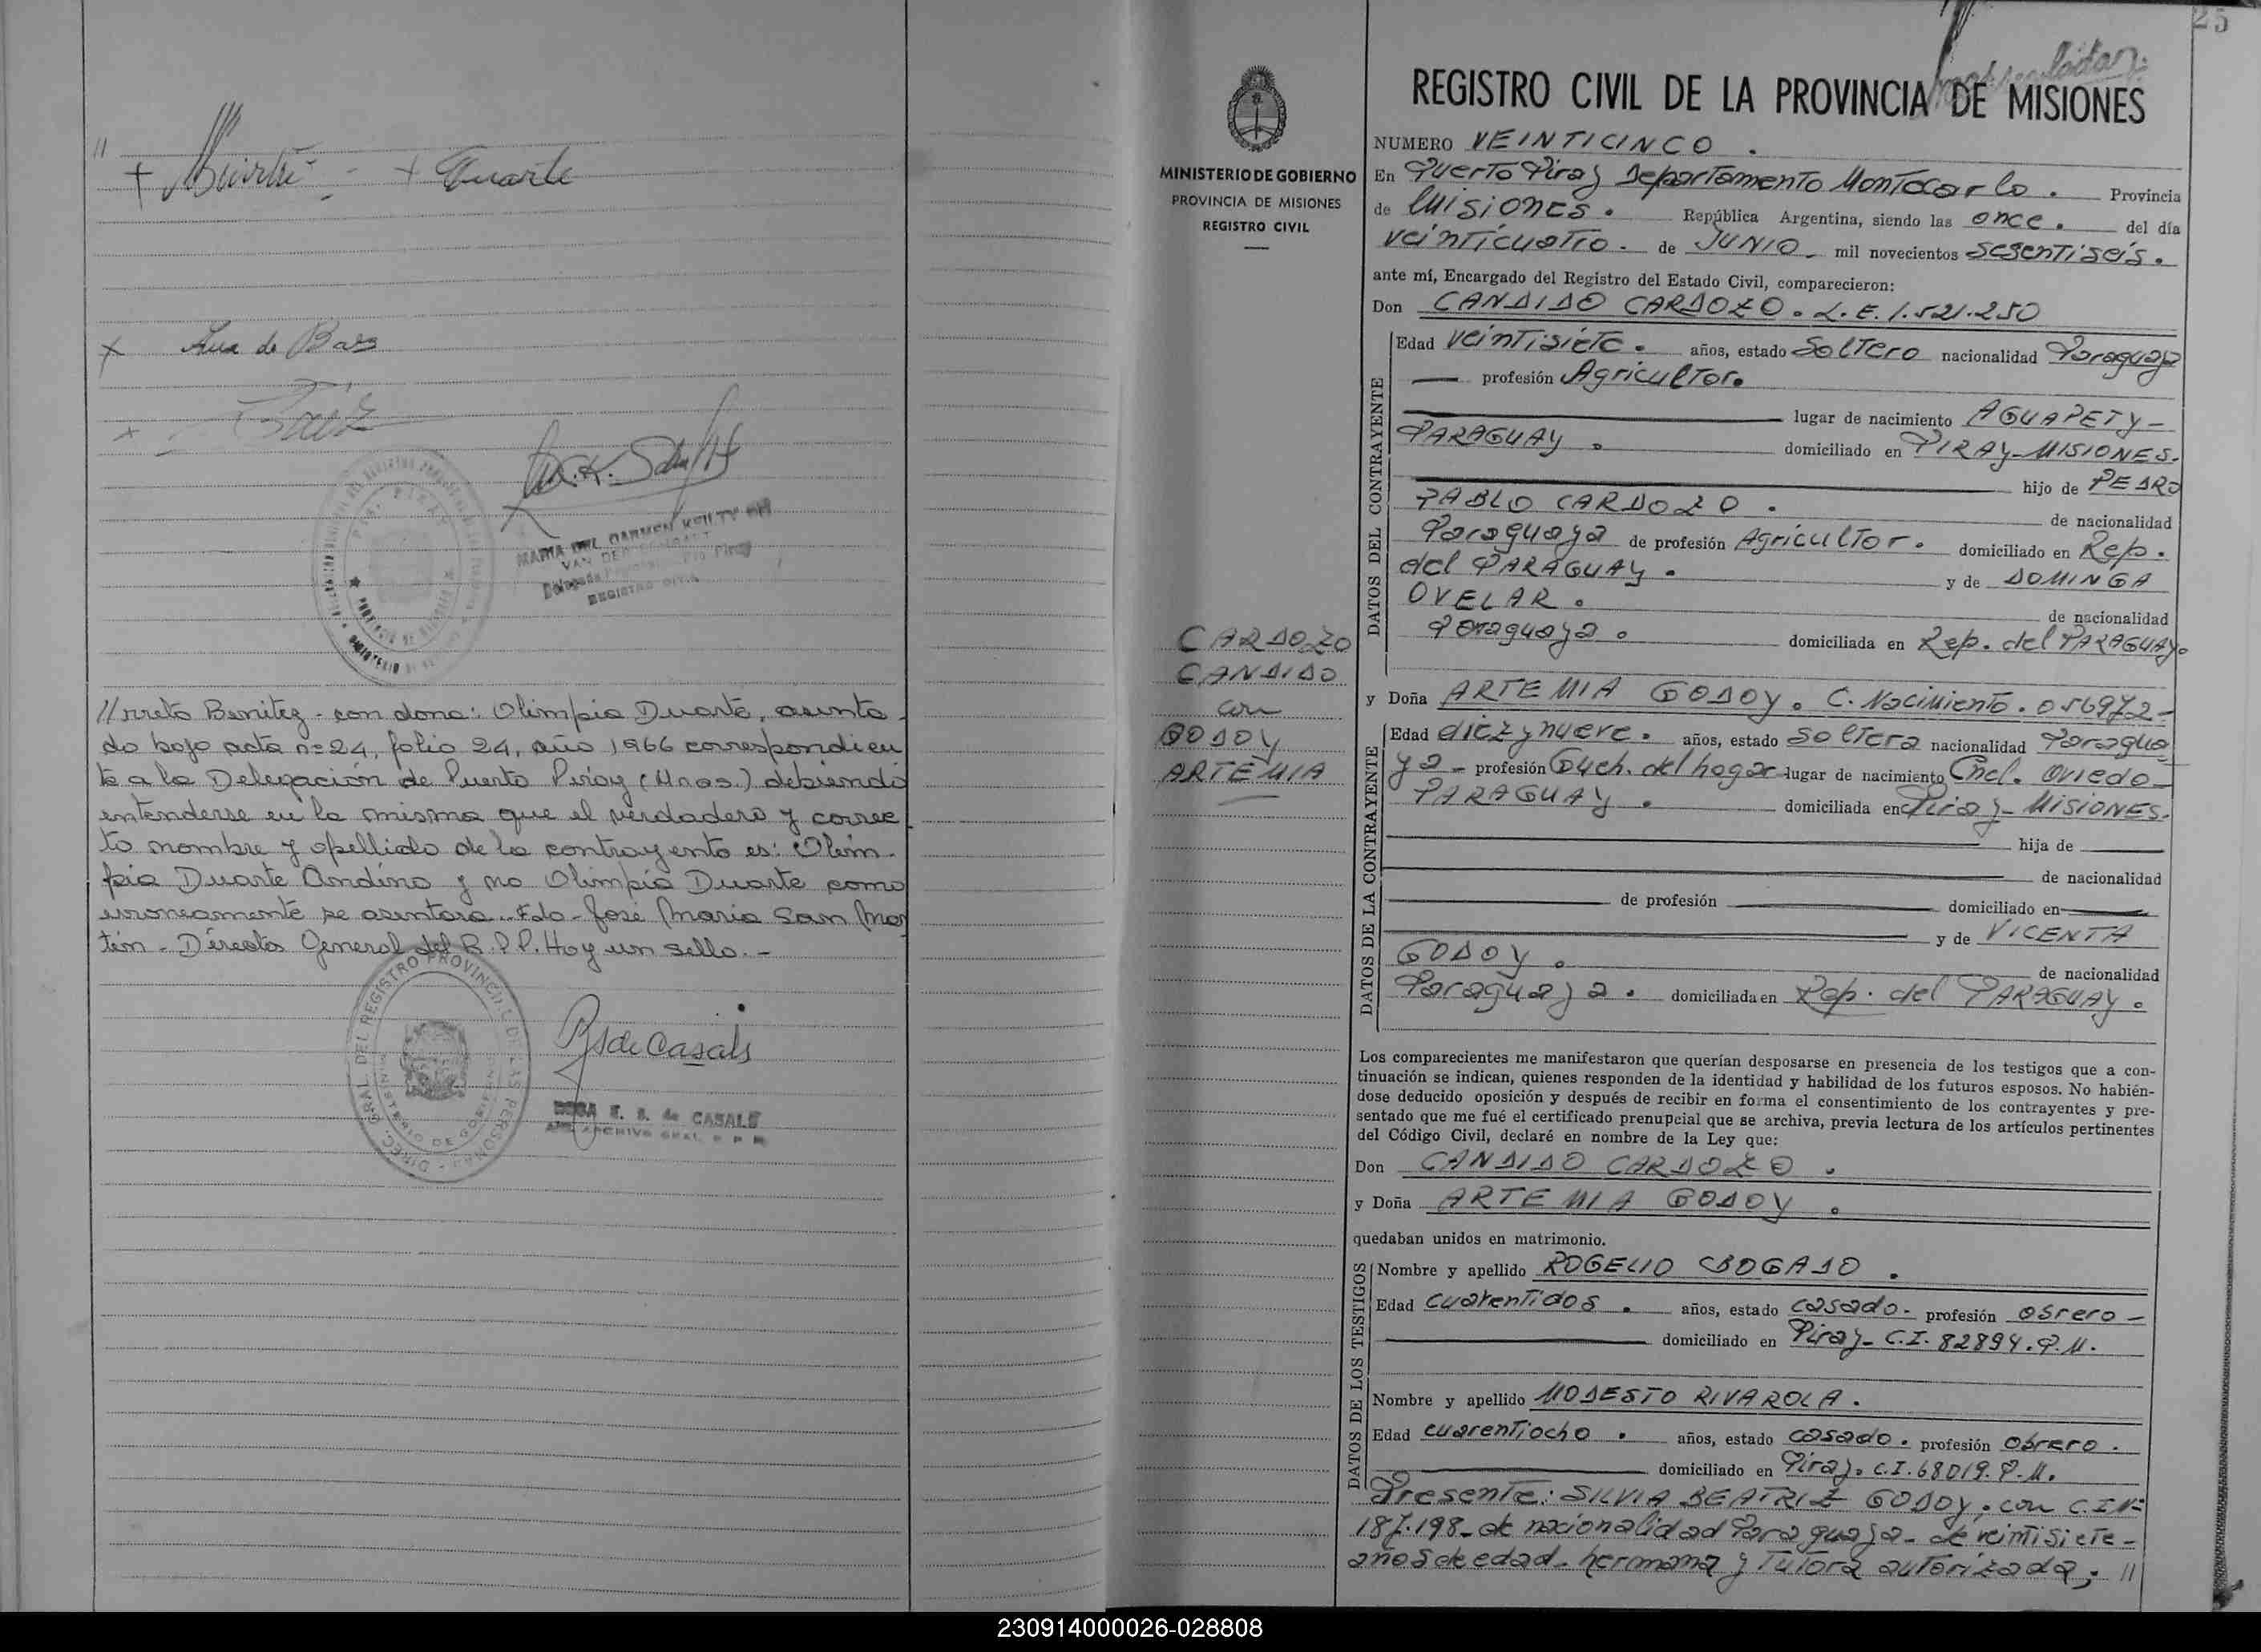 //
+ - + Duarte
x Ana de Baez
x Baez
MARIA DEL CARMEN
REGISTRO CIVIL
// rreto Benitez - con dona: Olimpia Duarte, asenta-
do bajo acta nº 24, folio 24, año 1966 correspondien
te a la Delegación de Puerto Piray (Mnes.) debiendo
entenderse en la misma que el verdadero y correc
to nombre y apellido de la contrayente es: Olim-
pia Duarte Andino y no Olimpia Duarte como
erroneamente se asentara.- Fdo- Jose Maria San Mar
tin - Director General del R.P.P. Hay un sello.-
DIREC. GRAL. DEL REGISTRO PROVINCIAL DE LAS PERSONAS
MINISTERIO DE GOBIERNO
RS de Casals
ROSA E. S. de CASALS
ARCHIVO GRAL. R P P
MINISTERIO DE GOBIERNO
PROVINCIA DE MISIONES
REGISTRO CIVIL
CARDOZO
CANDIDO
con
GODOY
ARTEMIA
25
REGISTRO CIVIL DE LA PROVINCIA DE MISIONES
NUMERO VEINTICINCO.
En Puerto Piray Departamento Montecarlo. Provincia
de Misiones. República Argentina, siendo las once. del día
veinticuatro. de JUNIO. mil novecientos sesentiseis.
ante mí, Encargado del Registro del Estado Civil, comparecieron:
Don CANDIDO CARDOZO. L.E. 1.521.250
DATOS DEL CONTRAYENTE
Edad veintisiete. años, estado soltero nacionalidad Paraguaya
profesión Agricultor.
lugar de nacimiento AGUAPETY-
PARAGUAY. domiciliado en PIRAY-MISIONES.
hijo de PEDRO
PABLO CARDOZO. de nacionalidad
Paraguaya de profesión Agricultor. domiciliado en Rep.
del PARAGUAY. y de DOMINGA
OVELAR. de nacionalidad
Paraguaya. domiciliada en Rep. del PARAGUAY.
y Doña ARTEMIA GODOY. C. Nacimiento. 056972-
DATOS DE LA CONTRAYENTE
Edad diez y nueve. años, estado soltera nacionalidad Paragua
ya - profesión Queh. del hogar lugar de nacimiento Cnel. Oviedo-
PARAGUAY. domiciliada en Piray-MISIONES.
hija de
de nacionalidad
de profesión domiciliado en
y de VICENTA
GODOY. de nacionalidad
Paraguaya. domiciliada en Rep. del PARAGUAY.
Los comparecientes me manifestaron que querían desposarse en presencia de los testigos que a con-
tinuación se indican, quienes responden de la identidad y habilidad de los futuros esposos. No habién-
dose deducido oposición y después de recibir en forma el consentimiento de los contrayentes y pre-
sentado que me fué el certificado prenupcial que se archiva, previa lectura de los artículos pertinentes
del Código Civil, declaré en nombre de la Ley que:
Don CANDIDO CARDOZO.
y Doña ARTEMIA GODOY.
quedaban unidos en matrimonio.
DATOS DE LOS TESTIGOS
Nombre y apellido ROGELIO BOGADO.
Edad cuarentidos. años, estado casado. profesión obrero-
domiciliado en Piray- C.I. 82894. P.M.
Nombre y apellido MODESTO RIVAROLA.
Edad cuarentiocho. años, estado casado. profesión obrero.
domiciliado en Piray. C.I. 68019. P.M.
Presente: SILVIA BEATRIZ GODOY, con C.I Nº
187.198. de nacionalidad Paraguaya- de veintisiete-
años de edad- hermana y Tutora autorizada; //
230914000026-028808